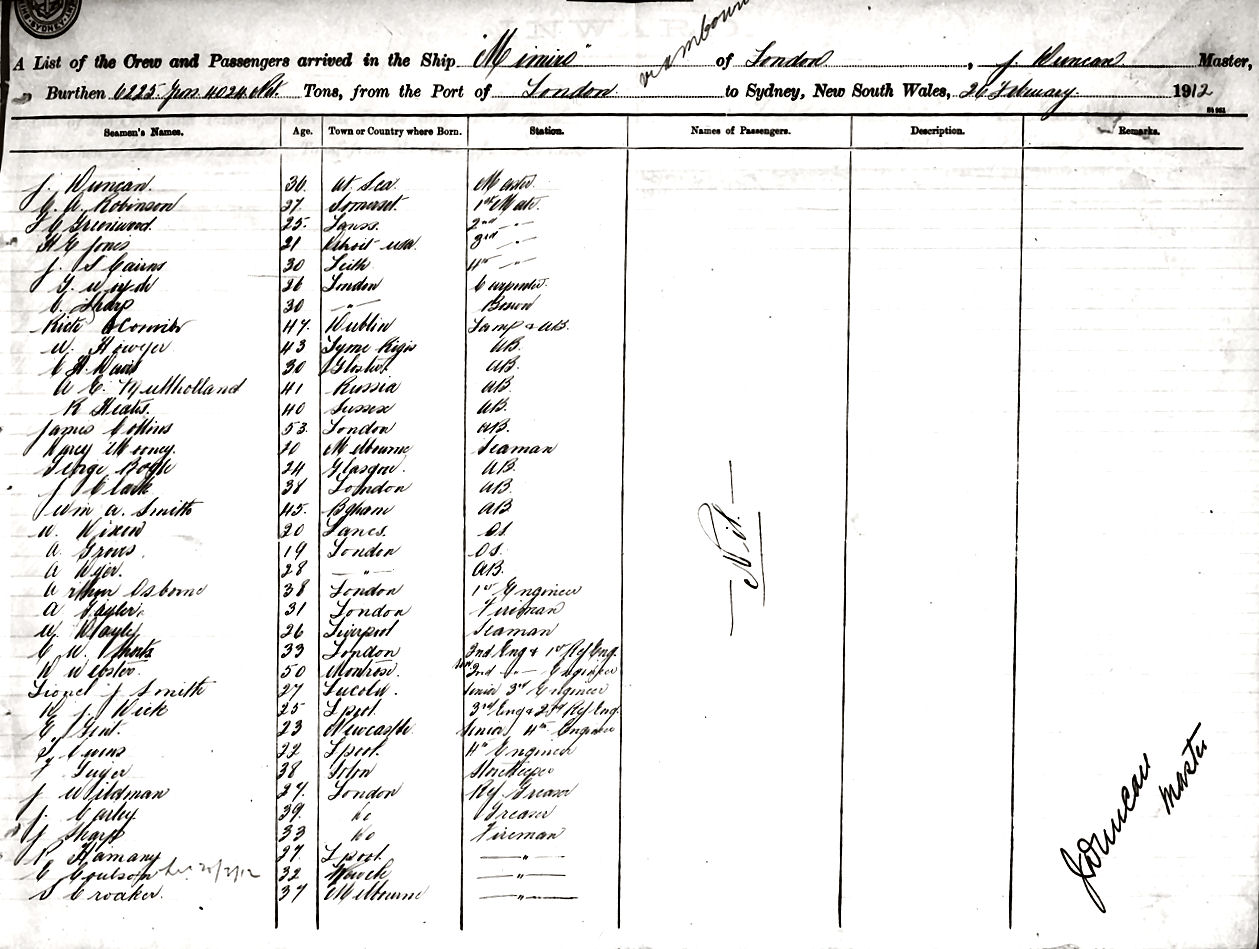 SYDNEY
via Mbourne
A List of the Crew and Passengers arrived in the Ship "Mimiro" of London, J. Duncan Master,
Burthen 6225 Grs 4024 Nt. Tons, from the Port of London to Sydney, New South Wales, 26 February 1912
Seamen's Names. Age. Town or Country where Born. Station. Names of Passengers. Description. Remarks.
J. Duncan 36 At Sea Master
G. A. Robinson 37 Somerset 1st Mate
Greenwood 25 Lancs. 2nd "
H E Jones 21 Detroit USA 3rd "
J. S Cairns 30 Leith 4th "
26 London Carpenter
C. Sharp 30 " Bosun
47 Dublin Lamp & AB.
W. Hawyer 43 Lyme Regis AB.
C H Davis 30 Gloster AB.
A E. Mullholland 41 Russia AB.
R Heates 40 Sussex AB.
James Collins 53 London AB.
Mooney 20 Melbourne Seaman
George 24 Glasgow AB.
J Clark 38 London AB.
Wm A. Smith 45 Bham AB
W. Dixon 20 Lancs. OS.
A Groves 19 London OS.
A Dyer. 28 " AB.
Arthur Osborne 38 London 1st Engineer
A Tayler 31 London Fireman
W. 26 Liverpool Seaman
C W. 33 London 2nd Eng & 1st Ref Eng.
D Webster 50 Montrose 2nd " Engineer
Lionel J Smith 27 Senior 3rd Engineer
J. Dick 25 Lpool. 3rd Eng & 2nd Ref Eng.
E. Gent. 23 Newcastle Senior 4th Engineer
22 Lpool. 4th Engineer
F Guyer 38 Soton Storekeeper
J. Wildman 27 London Ref Greaser
J. Varley 39 Do Greaser
J Sharp 33 Do Fireman
27 Lpool. "
C Coulson 32 "
S Croaker. 37 Melbourne "
Nil
J Duncan
Master